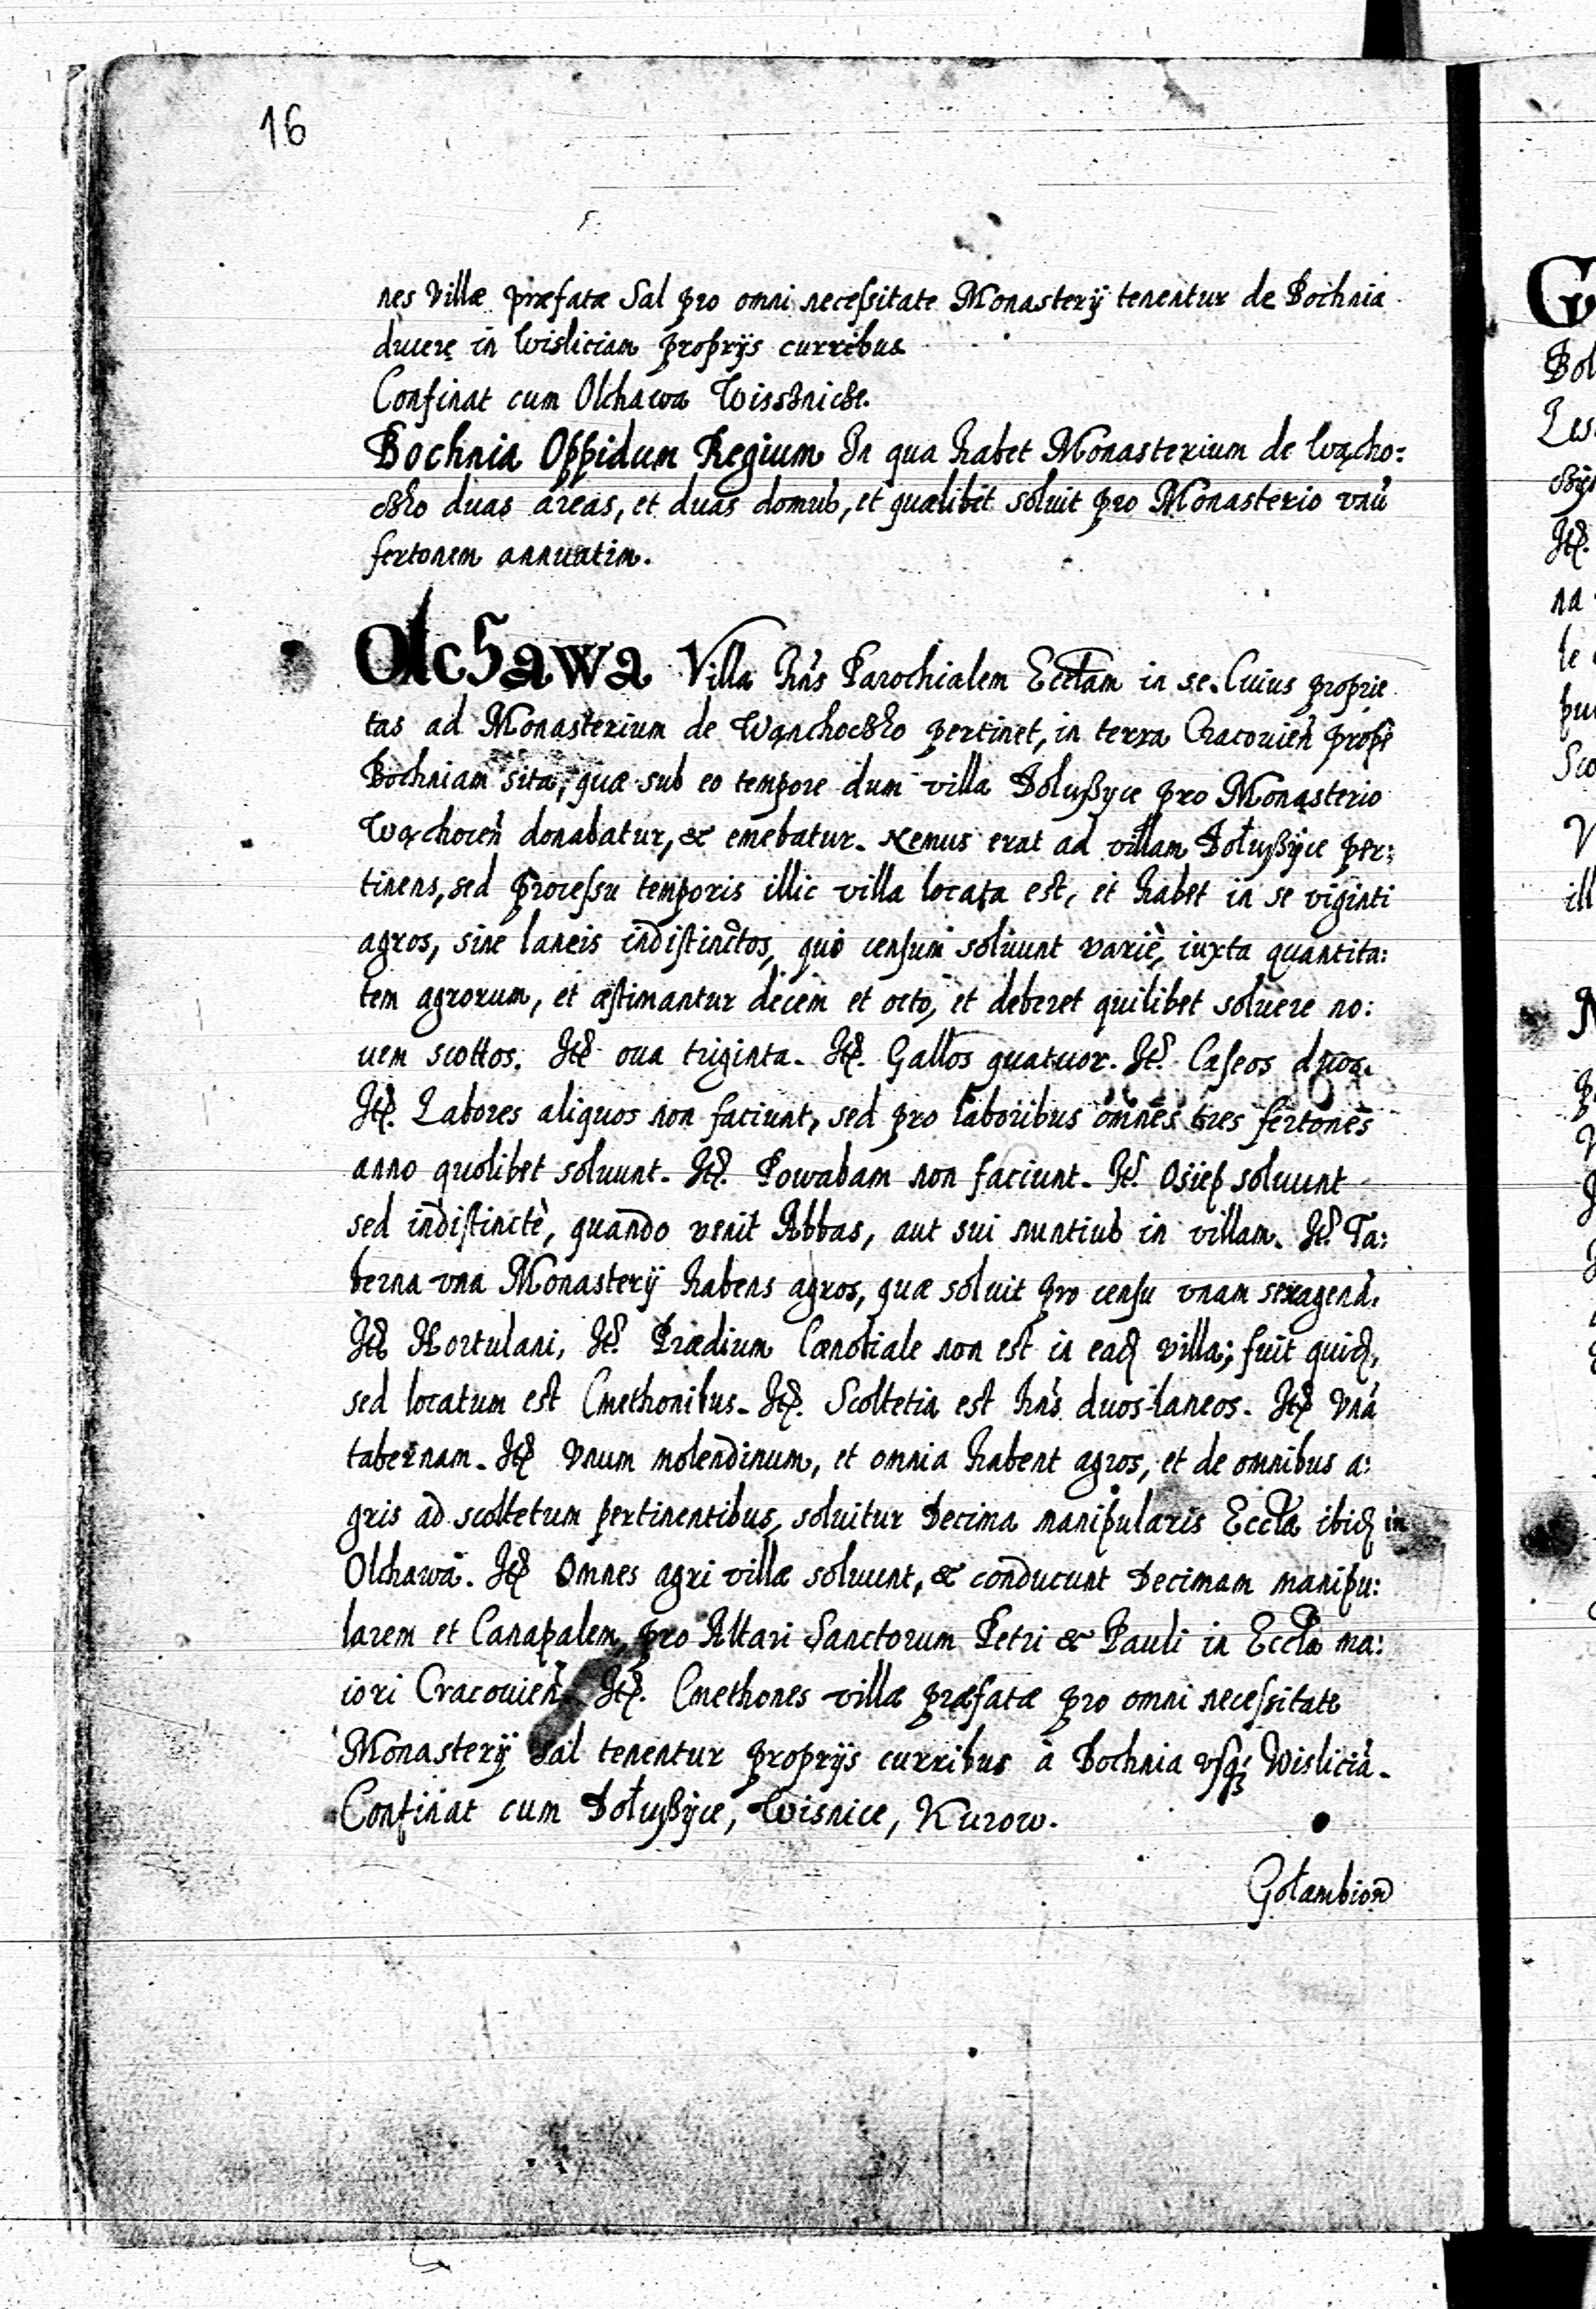 16
nes Villæ præfatæ Sal pro omni necessitate Monasterij tenentur de Bochnia
ducere in Wisliciam proprijs curribus
Confinat cum Olchawa Wissnicze.
Bochnia Oppidum Regium In qua habet Monasterium de Wącho:
czko duas areas, et duas domus, et quælibet soluit pro Monasterio vnũ
fertonem annuatim.
Olchawa Villa hñs Parochialem Ecclam in se. Cuius proprie
tas ad Monasterium de Wąnchoczko pertinet, in terra Cracouień prope
Bochniam sita, quæ sub eo tempore dum villa Dołußyce pro Monasterio
Wąchocẽn donabatur, & emebatur. Nemus erat ad villam Dołußyce per:
tinens, sed processu temporis illic villa locata est, et habet in se viginti
agros, sine laneis indistinctos, qui censum soluunt variè, iuxta quantita:
tem agrorum, et æstimantur decem et octo, et deberet quilibet soluere no:
uem scottos. Itẽ oua triginta. Itẽ. Gallos quatuor. Itẽ. Caseos duos.
Itẽ. Labores aliquos non faciunt, sed pro laboribus omnes tres fertones
anno quolibet soluunt. Itẽ. Powabam non faciunt. Itẽ. Osiep soluunt
sed indistinctè, quando venit Abbas, aut sui nuntius in villam. Itẽ. Ta:
berna vna Monasterij habens agros, quæ soluit pro censu vnam sexagenã.
Itẽ Hortulani, Itẽ. Prædium Cænobiale non est in eadẽ villa; fuit quidẽ,
sed locatum est Cmethonibus. Itẽ. Scoltetia est hñs duos laneos. Itẽ Vnã
tabernam. Itẽ Vnum molendinum, et omnia habent agros, et de omnibus a:
gris ad scoltetum pertinentibus, soluitur Decima manipularis Eccla ibidẽ in
Olchawa. Itẽ Omnes agri villæ soluunt, & conducunt Decimam manipu:
larem et Canapalem, pro Altari Sanctorum Petri & Pauli in Eccla ma:
iori Cracouień. Itẽ. Cmethones villæ præfatæ pro omni necessitate
Monasterij Sal tenentur proprijs curribus à Bochnia vsq; Wisliciã.
Confinat cum Dołußyce, Wisnice, Kurow.